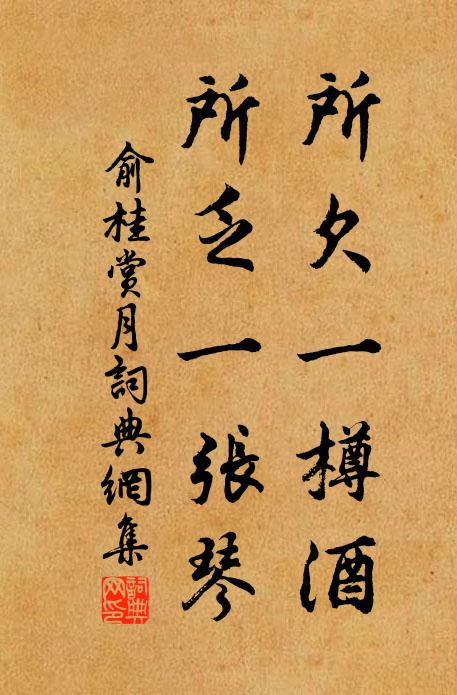 所欠一樽酒
所乏一張琴
俞桂賞月詞典網集
詞典網印